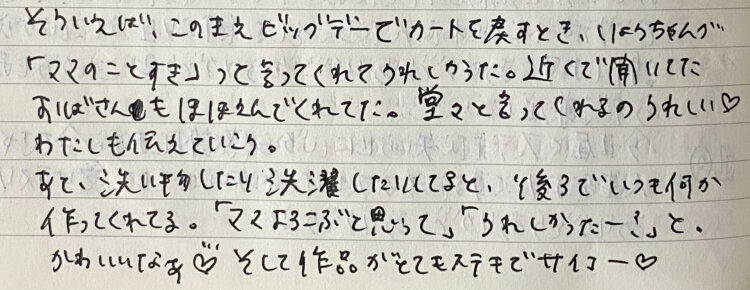 そういえば、このまえビッグデーでカートを戻すとき、しょうちゃんが
「ママのことすき」って言ってくれてうれしかった。近くで聞いてた
おばさんもほほえんでくれてた。堂々と言ってくれるのうれしい♡
わたしも伝えていこう。
あと、洗い物したり洗濯したりしてると、後ろでいつも何か
作ってくれてる。「ママよろこぶと思って」「うれしかったー?」と。
かわいいなぁ♡ そして作品がとてもステキでサイコー♡